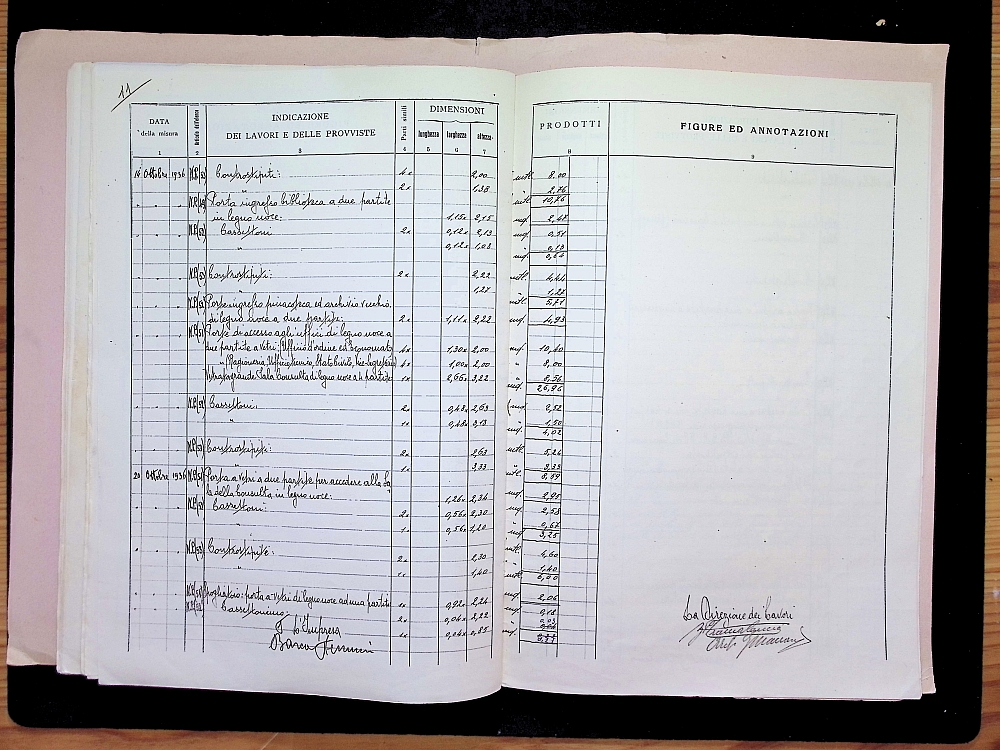 11
DATA della misura
INDICAZIONE DEI LAVORI E DELLE PROVVISTE
Parti simili
DIMENSIONI
lunghezza larghezza altezza
PRODOTTI
FIGURE ED ANNOTAZIONI
1 2 3 4 5 6 7 8 9
16 Ottobre 1936 N.P.(53) Controstipiti: 4x 2,00 mtl. 8.00
2x 1,38 " 2,76
mtl. 10,76
Porta ingresso biblioteca a due partite
in legno noce: 1,15x 2,15 mq. 2,47
Cassettoni 2x 0,12x 2,13 mq. 0,51
" 0,12x 1,08 0,13
mq. 0,64
N.P.(53) Controstipiti: 2x 2,22 mtl. 4,44
1,27 " 1,27
mtl. 5,71
Porte ingresso pinacoteca ed archivio vecchio
di legno noce a due partite: 2x 1,11x 2,22 mq. 4,93
Porte di accesso agli uffici di legno noce a
due partite a vetri: (Ufficio d'ordine ed Economato 4x 1,30x 2,00 mq. 10,40
" (Ragioneria, Ufficio tecnico, Stato Civile, Vice-Segretario) 4x 1,00x 2,00 " 8,00
Vetrata grande Sala Consulta di legno noce a 4 partite 1x 2,66x 3,22 " 8,56
mq. 26,96
Cassettoni: 2x 0,48x 2,63 mq. 2,52
" 1x 0,48x 3,13 1,50
mq. 4,02
N.P.(53) Controstipiti: 2x 2,63 mtl. 5,26
1x 3,33 " 3,33
mtl. 8,59
20 Ottobre 1936 Porta a vetri a due partite per accedere alla Sa
la della Consulta in legno noce: 1,26x 2,34 mq. 2,95
Cassettoni: 2x 0,56x 2,30 mq. 2,58
" 1x 0,56x 1,20 " 0,67
mq. 3,25
N.P.(53) Controstipiti: 2x 2,30 mtl. 4,60
" 1x 1,40 1,40
mtl. 6,00
porta a vetri di legno noce ad una partita 1x 0,92x 2,24 mq. 2,06
Cassettoncino: 2x 0,04x 2,22 mq. 0,18
1x 0,04x 0,85
L'Impresa
La Direzione dei Lavori